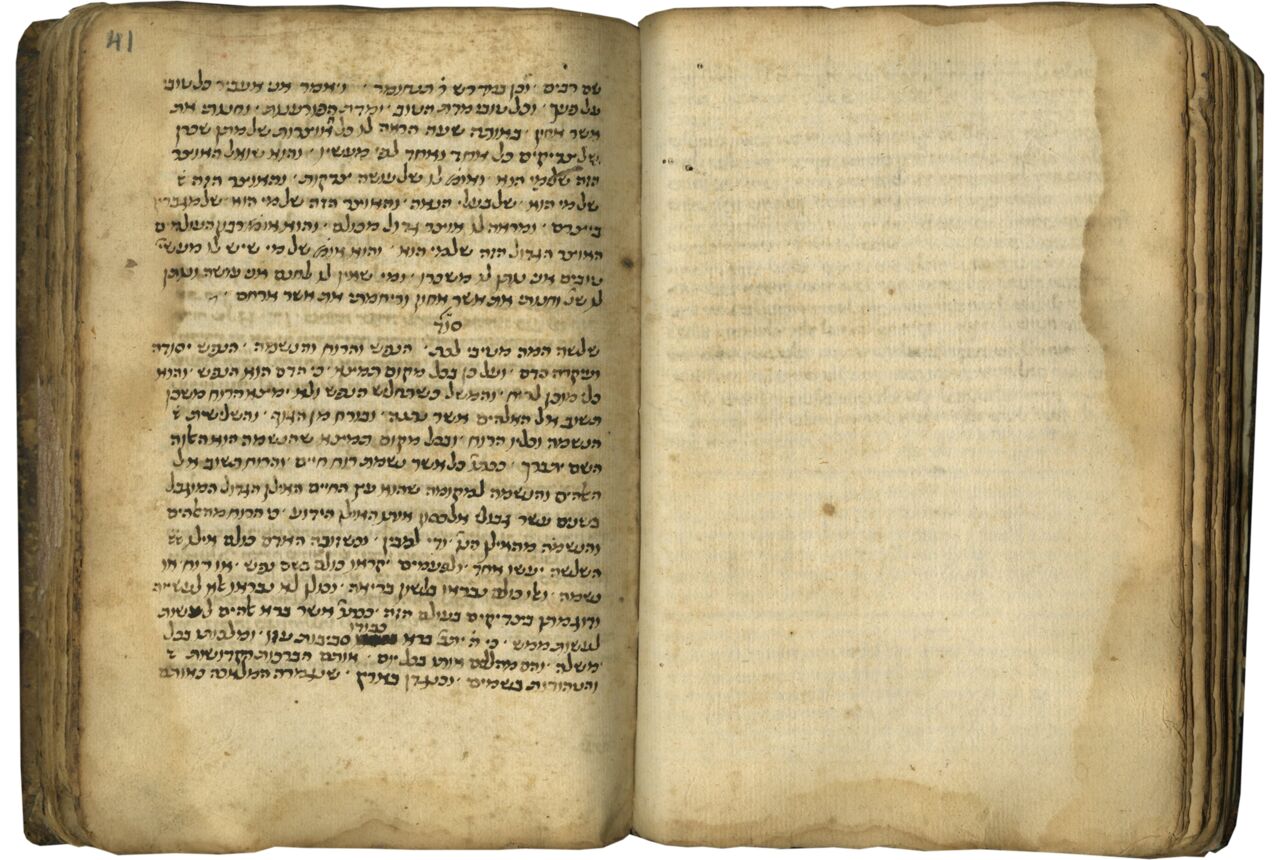 41
שם רבים · וכן במדרש ר' תנחומר · ויאמר אני אעביר כל טובי
על פניך · וכל טובי מדת הטוב · ומדת הפורענות · וחנתי את
אשר אחון · באותה שעה הראה לו כל אוצרות של מתן שכרן
של צדיקים כל אחד ואחד לפי מעשיו · והוא שואל האוצר
הזה של מי הוא · ואומ' לו של עושה צדקות · והאוצר הזה
של מי הוא · של בעלי הנאה · והאוצר הזה של מי הוא · של מגדלי
ומראה לו אוצר גדול מכולם · והוא אומ' רבון העולמים
האוצר הגדול הזה של מי הוא · והוא אומ' של מי שיש לו מעשי'
טובים אני נותן לו משכרו · ומי שאין לו לחנם אני עושה ונותן
לו שנ' וחנתי את אשר אחון וריחמתי את אשר ארחם ·
סוד
שלשה המה מטיבי לכת · הנפש והרוח והנשמה · הנפש יסודה
ועיקרה הדם · ועל כן בכל מקום תמצא · כי הדם הוא הנפש · והוא
כל מוכן לרוח · והמשל כשתחלש הנפש ולא ימצא הרוח משכן
תשוב אל האלהים אשר נתנה · ובורח מן הגוף · והשלישית
הנשמה וכליו הרוח · ובכל מקום תמצא שהנשמה הוא האלוה
השם יתברך · כענין כל אשר נשמת רוח חיים · והרוח תשוב אל
האלהים והנשמה למקומה שהוא עץ החיים האילן הגדול המוגבל
בשנים עשר גבולי אלכסון אותו האילן הידוע · כי הרוח מהאלהים
והנשמה מהאילן הנז' · ודי למבין · וכשזוכה האדם כולם אילו
השלשה יעשו אחד · ולפעמים יקראו כולם בשם נפש · או רוח או
נשמה · ואלו כולם נבראו בלשון בריאה · וכולן לא נבראו אלא לעשייה
ודוגמתן בצדיקים בעולם הזה · כענין אשר ברא אלהים לעשות
לעשות ממש · כי ה' ית' ברא כבודו סביבות עוזו · ומלכותו בכל
משלה · והם מהללים אותו בכל יום · אותם הברכות הקדושות
והטהורות בשמים · וכנגדן בארץ · שנגמרה המלאכה באותם